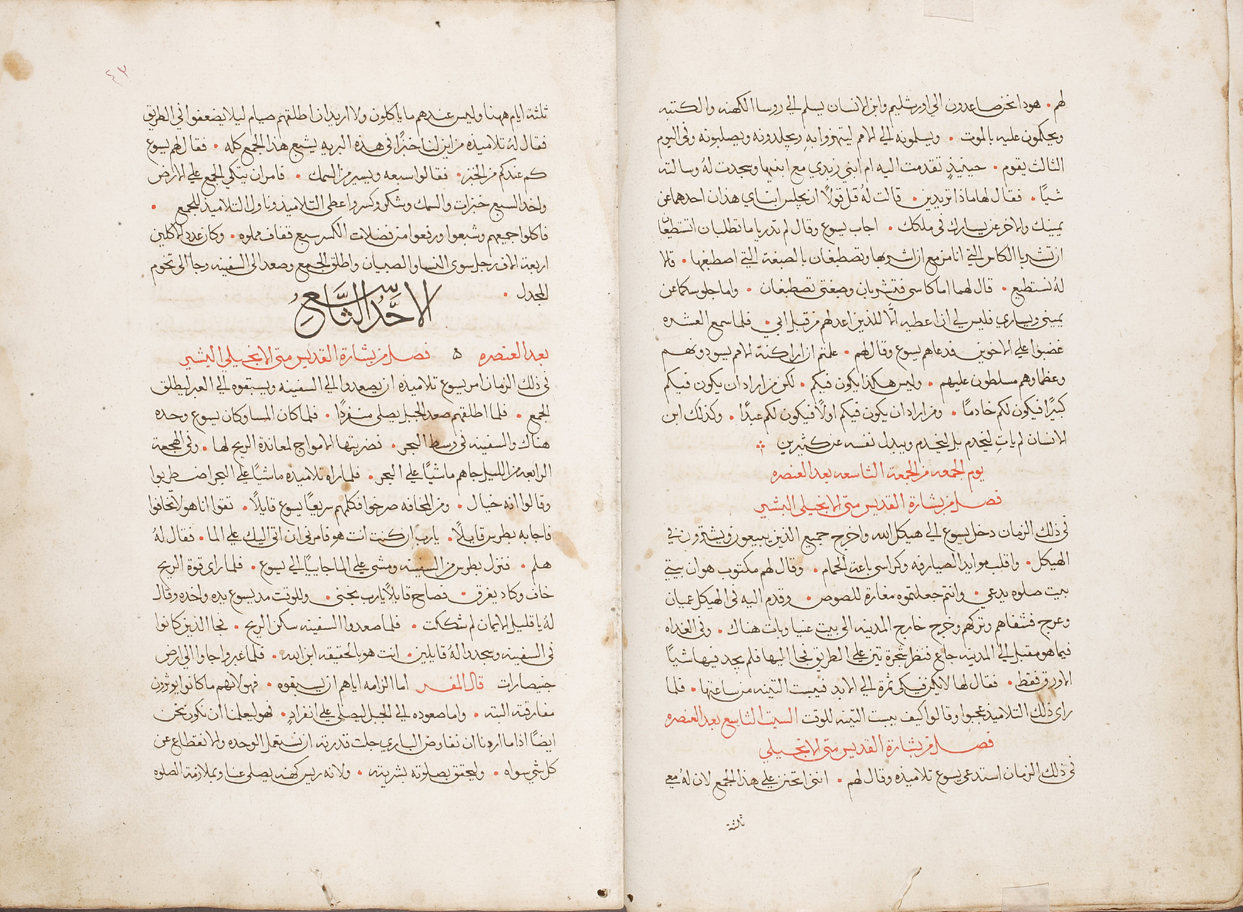 لهم • هوذا نحن صاعدون الي اورشليم وابن الانسان يسلم الي روسا الكهنه والكتبه
ويحكمون عليه بالموت • ويسلمونه الي الامم ليتهزوا به ويجلدونه ويصلبونه وفي اليوم
الثالث يقوم • حينيذٍ تقدمت اليه ام ابني زبدي مع ابنيها وسجدت له وسالته
شيًا • فقال لها ماذا تريدين • قالت له قل قولًا ان يجلس ابناي هذان احدهما عن
يمينك والاخر عن يسارك في ملكك • اجاب يسوع وقال لم تدريا ما تطلبان اتستطيعان
ان تشربا الكاس التي انا مزمع ان اشربها وتصطبغان بالصبغة التي اصطبغها • قالا
له نستطيع • قال لهما اما كاسي فتشربان وصبغتي تصطبغان • واما جلوسكما عن
يميني ويساري فليس لي ان اعطيه الا للذين اعد لهم من قبل ابي • فلما سمع العشره
غضبوا علي الاخوين فدعاهم يسوع وقال لهم • علمتم ان اراكنة الامم يسودونهم
وعظماوهم مسلطون عليهم • وليس هكذا يكون فيكم • لكن من اراد ان يكون فيكم
كبيرًا فيكون لكم خادمًا • ومن اراد ان يكون فيكم اولًا فيكون لكم عبدًا • وكذلك ابن
الانسان لم يات ليُخدم بل ليَخدم ويبذل نفسه عن كثيرين
يوم الجمعه من الجمعة التاسعه بعد العنصره
فصل من بشارة القديس متي الانجيلي البشير
في ذلك الزمان دخل يسوع الي هيكل الله واخرج جميع الذين يبيعون ويشترون في
الهيكل • واقلب موايد الصيارفه وكراسي باعة الحمام • وقال لهم مكتوب هو ان بيتي
بيت صلوه يدعي • وانتم جعلتموه مغارة للصوص • وقدم اليه في الهيكل عميان
وعرج فشفاهم وتركهم وخرج خارج المدينه الي بيت عنيا وبات هناك • وفي الغداه
فيما هو مقبل الي المدينه جاع فنظر شجرة تين علي الطريق فجا اليها فلم يجد فيها شيًا
الا ورق فقط • فقال لها لا تكن فيكي ثمرة الي الابد فيبست التينه من ساعتها • فلما
راي ذلك التلاميذ عجبوا وقالوا كيف يبست التينه للوقت السبت التاسع بعد العنصره
فصل من بشارة القديس متي الانجيلي
في ذلك الزمان استدعي يسوع تلاميذه وقال لهم • انني اتحنن علي هذا الجمع لان له معي
ثلثة
٤٢
ثلثة ايام ههنا وليس عندهم ما ياكلون ولا اريد ان اطلقهم صيام ليلا يضعفوا في الطريق
فقال له تلاميذه من اين لنا خبزًا في هذه البريه يشبع هذا الجمع كله • فقال لهم يسوع
كم عندكم من الخبز • فقالوا سبعه ويسير من السمك • فامر ان يتكي الجمع علي الارض
واخذ السبع خبزات والسمك وشكر وكسر واعطي التلاميذ وناول التلاميذ للجمع •
فاكلوا جميعهم وشبعوا ورفعوا من فضلات الكسر سبع قفاف مملوه • وكان عدد الاكلين
اربعة الاف رجل سوي النسا والصبيان واطلق الجموع وصعد الي السفينه وجا الي تخوم
المجدل •
الاحد التاسع
بعد العنصره ۵ فصل من بشارة القديس متي الانجيلي البشير
في ذلك الزمان امر يسوع تلاميذه ان يصعدوا الي السفينه ويسبقوه الي العبر ليطلق
الجمع • فلما اطلقهم صعد الجبل يصلي منفردًا • فلما كان المسا وكان يسوع وحده
هناك والسفينه في وسط البحر • تضربها الامواج لمعاندة الريح لها • وفي الهجعة
الرابعه من الليل جاهم ماشيًا علي البحر • فلما راه تلاميذه ماشيًا علي البحر اضطربوا
وقالوا انه خيال • ومن المخافه صرخوا فكلمهم سريعًا يسوع قايلًا • تقوا انا هو لا تخافوا
فاجابه بطرس قايلًا • يا رب ان كنت انت هو فامرني ان اتي اليك علي الما • فقال له
هلم • فنزل بطرس من السفينه ومشي علي الما جاييًا الي يسوع • فلما راي قوة الريح
خاف وكاد يغرق • فصاح قايلًا يا رب نجني • وللوقت مد يسوع يده واخذه وقال
له يا قليل الايمان لم شككت • فلما صعدوا السفينه سكن الريح • فجا الذين كانوا
في السفينه وسجدوا له قايلين • انت هو بالحقيقه ابن الله • فلما عبروا جاوا الي ارض
جنيصارات قال المفسر اما الزامه اياهم ان يسبقوه • فهو لانهم ما كانوا يوثرون
مفارقته البته • واما صعوده الي الجبل ليصلي علي انفرادٍ • فهو ليعلمنا ان نكون نحن
ايضًا اذا ما اردنا ان نفاوض الباري جلت قدرته ان نستعمل الوحده والانقطاع عن
كل شي سواه • وليحقق بصلوته بشريته • ولانه ريس كهنه يصلي عنا وبملازمة الصلوه